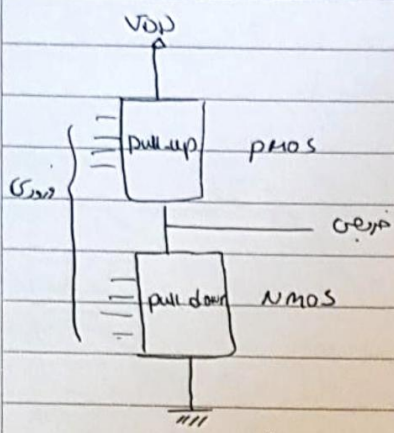 VDD
pull-up
PMOS
ورودی
خروجی
pull down
NMOS